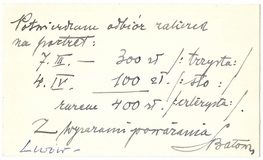 Potwierdzam odbiór zaliczek
na portret:
7. III. — 300 zł /: trzysta :/
4. IV. 100 zł /: sto :/
razem 400 zł /: czterysta :/
Z wyrazami poważania
Lwów SBatow